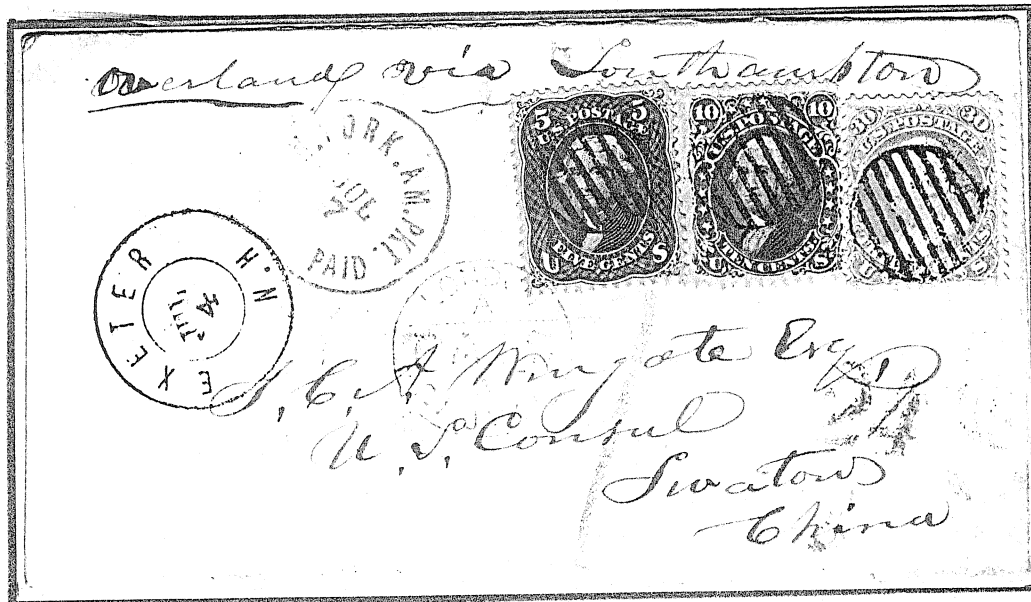 Overland via Southampton
5 5
U.S. POSTAGE
FIVE CENTS
U S
10 10
U.S. POSTAGE
TEN CENTS
U S
30 30
U.S. POSTAGE
U S
ORK. AM. PKT.
JUL
PAID
EXETER N.H.
JUL
J. C. A. Wingate Esq,
U. S. Consul
Swatow
China